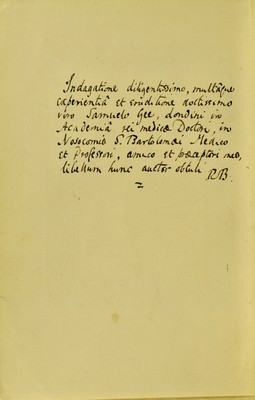 Indagatione diligentissimo, multâque
experientiâ et eruditione doctissimo
viro Samuelo Gee, Londini in
Academiâ rei medicæ Doctori, in
Nosocomio S. Bartolomæi Medico
et Professori, amico et præceptori meo,
libellum hunc auctor obtuli
RB.